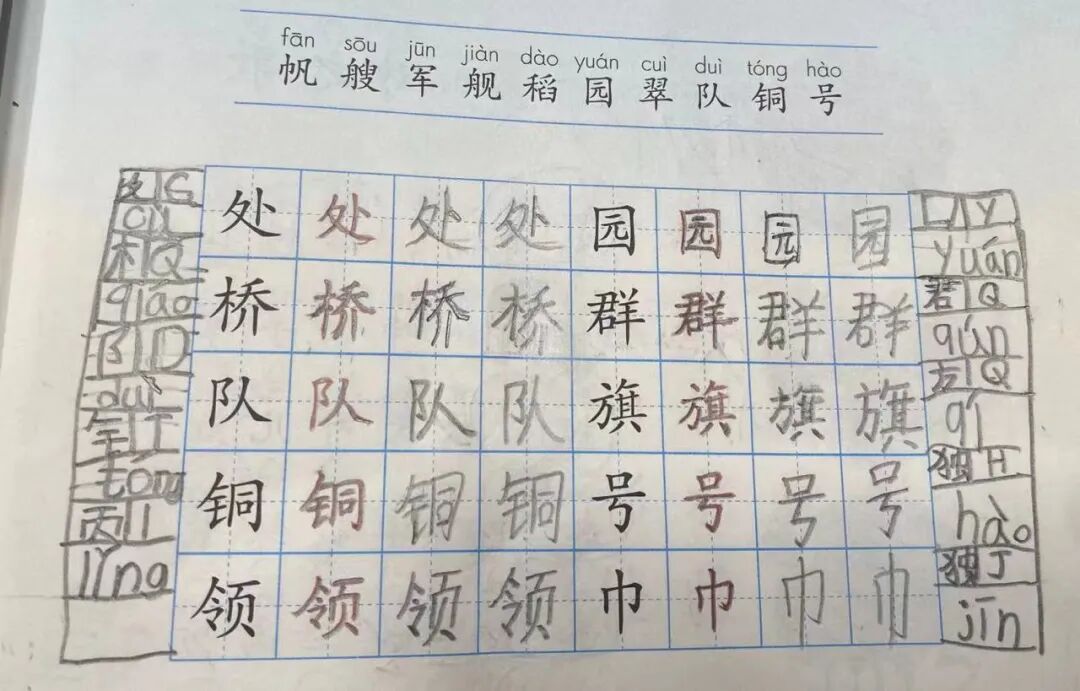 fān sōu jūn jiàn dào yuán cuì duì tóng hào
帆 艘 军 舰 稻 园 翠 队 铜 号
处 处 处 处 园 园 园 园 口 Y
yuán
木 Q 桥 桥 桥 桥 群 群 群 群 君 Q
qiáo qún
阝 D 队 队 队 队 旗 旗 旗 旗 方 Q
duì qí
铜 铜 铜 铜 号 号 号 号 独 H
tong hào
领 领 领 领 巾 巾 巾 巾 独 J
jīn